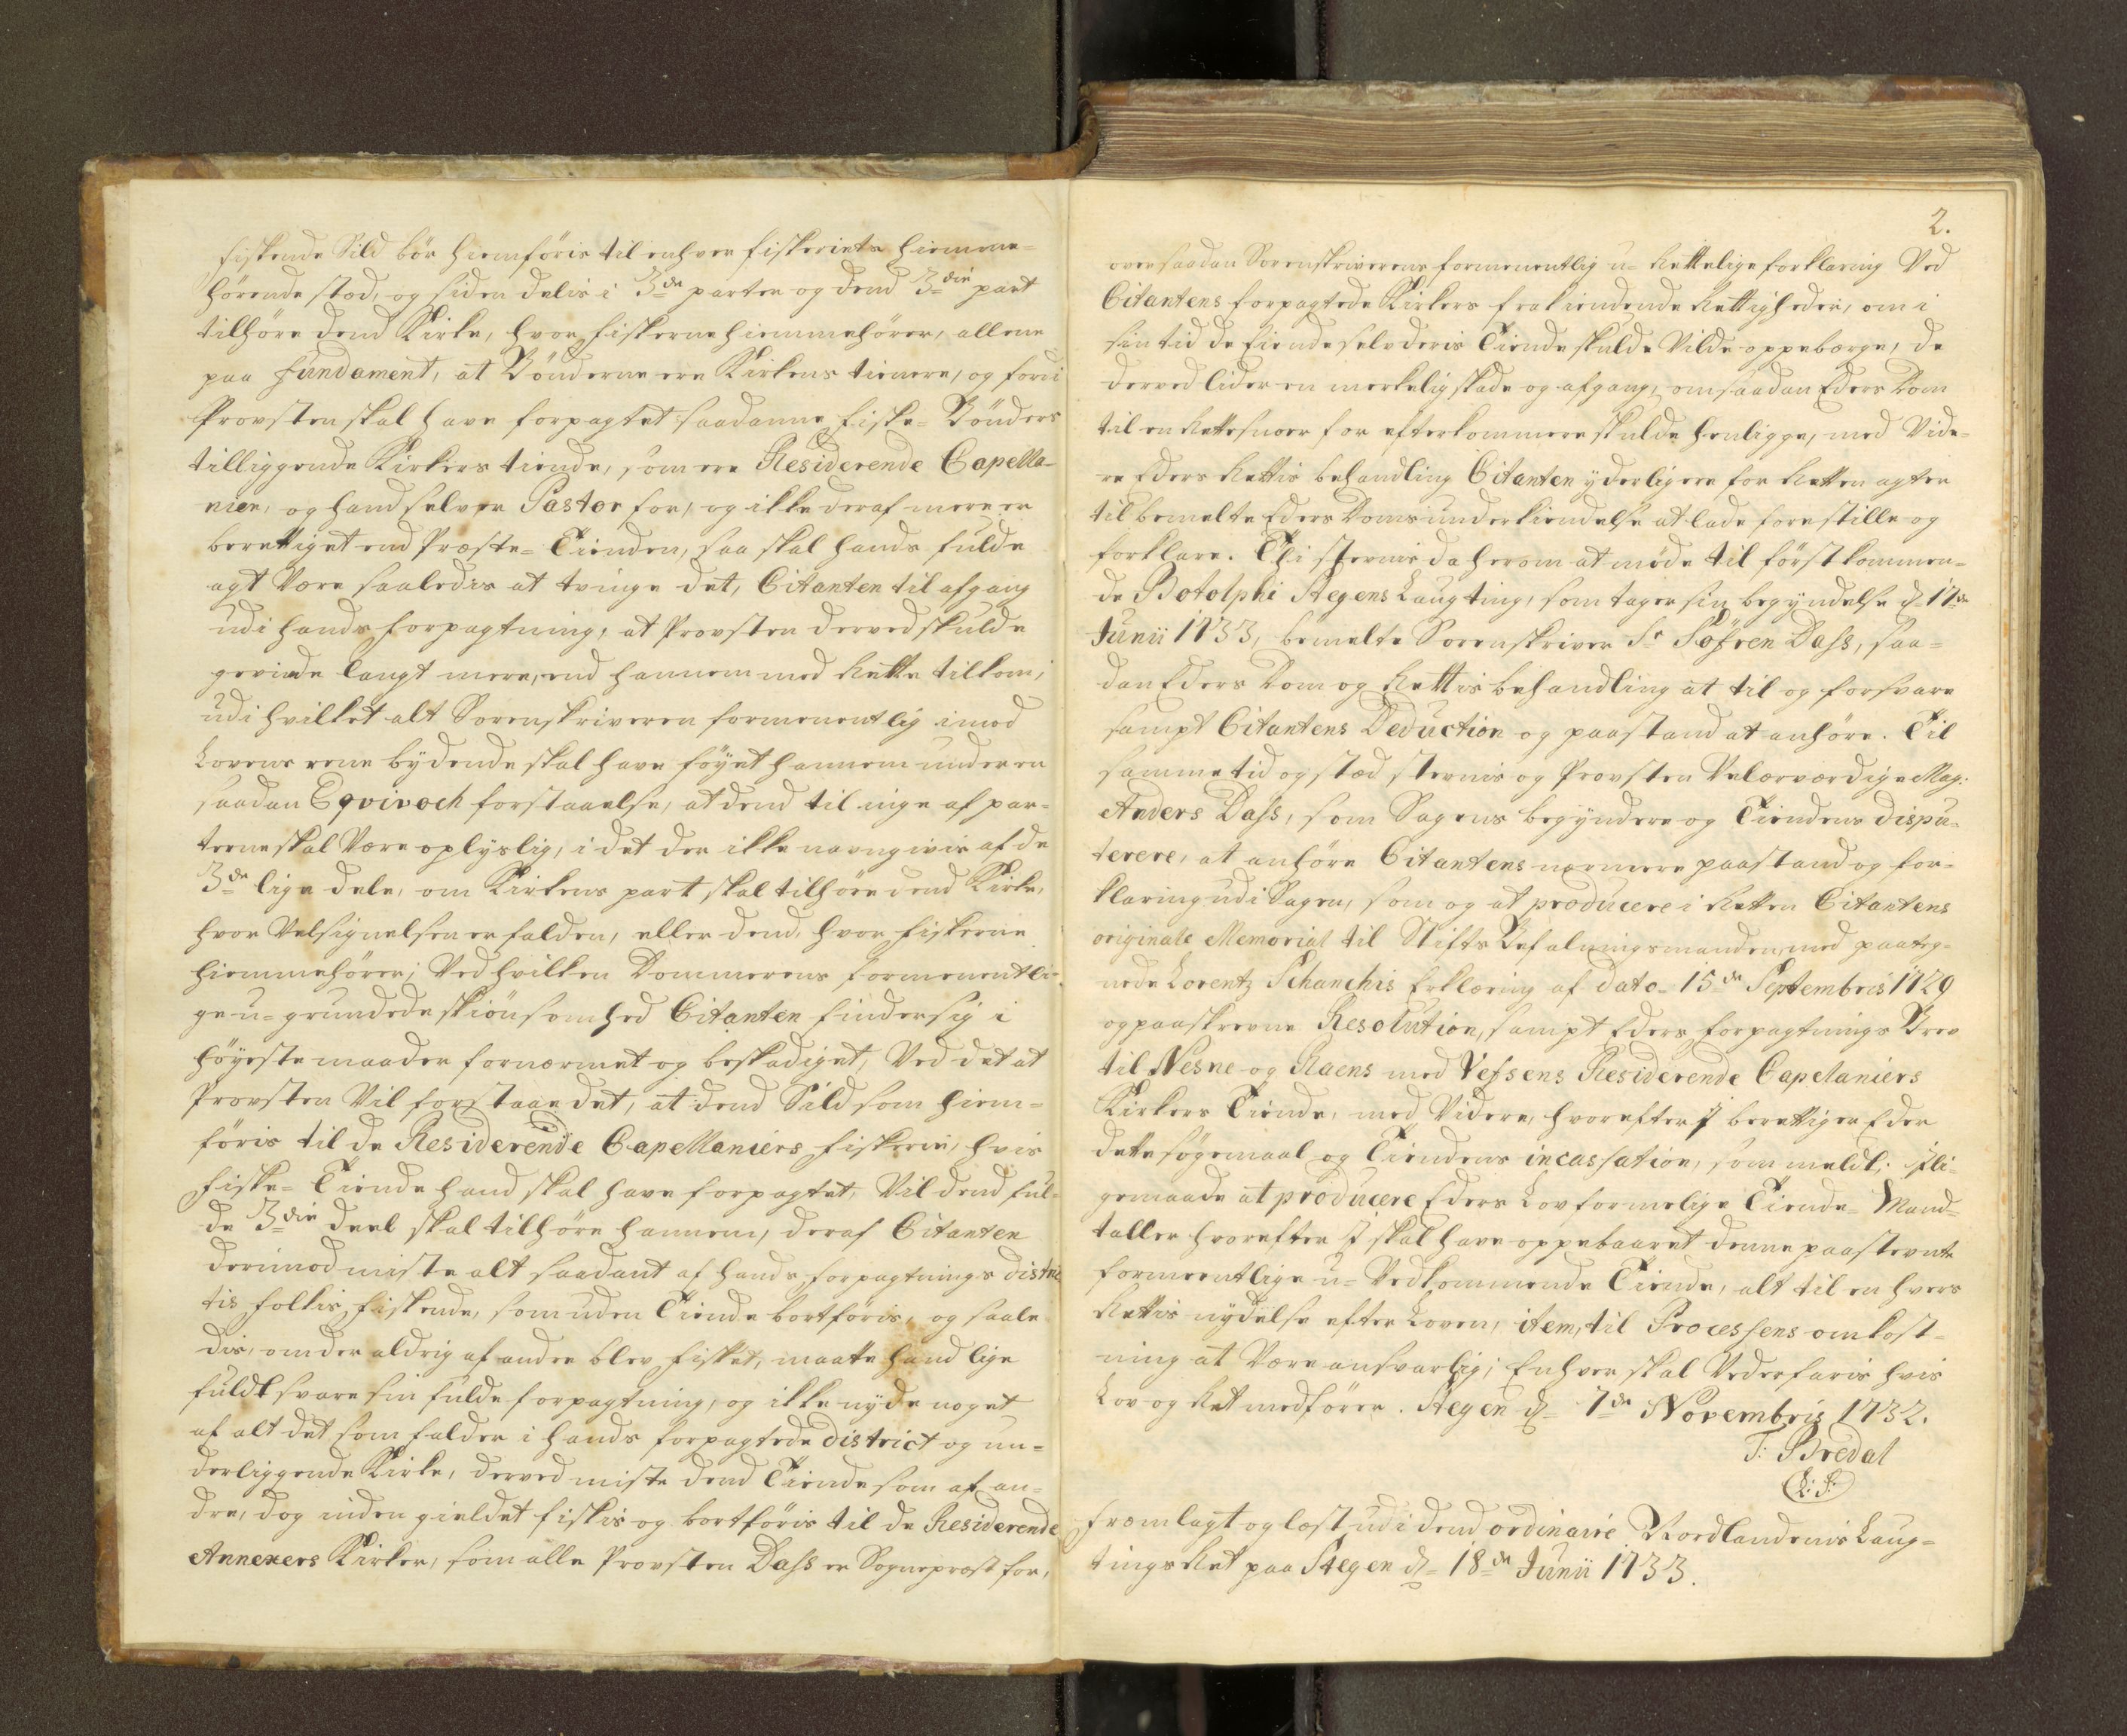 fiskende Sild bör hiemföris til enhver fiskeriets hiemme-
hörende stæd, og siden delis i 3de parter og dend 3die part
tilhöre dend Kirke, hvor fiskerne hiemmehörer, allene
paa fundament, at Bönderne ere Kirkens tienere, og fordi
Provsten skal have forpagtet saadanne fiske-Bönders
tilliggende Kirkers tiende, som ere Residerende Capella-
nier, og hand selv er Pastor for, og ikke deraf mere er
berettiget end Præste-Tienden, saa skal hands fulde
agt være saaledis at tvinge det, Citanten til afgang
udi hands forpagtning, at Provsten derved skulde
gevinde langt mere, end hannem med Rette tilkom,
udi hvilket alt Sorenskriveren formenentlig imod
Lovens rene bydende skal have föyet hannem under en
saadan Eqvivoch forstaaelse, at dend til inge af par-
terne skal være oplyslig, i det der ikke navngivis af de
3de lige dele, om Kirkens part skal tilhöre dend Kirke,
hvor Velsignelsen er falden, eller dend, hvor fiskerne
hiemmehörer; Ved hvilken Dommerens formenentli-
ge u-grundede skiönsomhed Citanten finder sig i
höyeste maader fornærmet og beskadiget, Ved det at
Provsten Vil forstaae det, at dend Sild som hiem-
föris til de Residerende Capellaniers fiskerie, hvis
fiske-Tiende hand skal have forpagtet, Vil dend ful-
de 3die deel skal tilhöre hannem, deraf Citanten
derimod miste alt saadant af hands forpagtnings distric
tis folkis fiskende, som uden Tiende bortföris, og saale
dis, om der aldrig af andre blev fisket, maatte hand lige
fuldt svare sin fulde forpagtning, og ikke nyde noget
af alt det som falder i hands forpagtede district og un-
derliggende Kirke, derved miste dend Tiende som af an-
dre, dog inden gieldet fiskis og bortföris til de Residerende
Annexers Kirker, som alle Provsten Dass er Sognepræst for,
2.
over saadan Sorenskriverens formenentlig u-Rettelige forklaring Ved
Citantens forpagtede Kirkers frakiendende Rettigheder, om i
sin tid de Eiende selv deris Tiende skulde Vilde oppebærge, de
derved lider en merkelig skade og afgang, om saadan Eders Dom
til en Rettesnoer for efterkommere skulde henligge, med Vide-
re Eders Rettis behandling Citanten yderligere for Retten agter
til bemelte Eders Doms underkiendelse at lade forestille og
forklare. Thi stevnis da herom at möde til först kommen-
de Botolphi Stegens Laugting, som tager sin begyndelse d. 17de
Junii 1733, bemelte Sorenskriver Sr Söfren Dass, saa-
dan Eders Dom og Rettis behandling at til og forsvare
sampt Citantens Deduction og paastand at anhöre. Til
samme tid og stæd stevnis og Provsten Velærværdige Mag:
Anders Dass, som Sagens begyndere og Tiendens dispu-
terere, at anhöre Citantens nærmere paastand og for-
klaring udi Sagen, som og at producere i Retten Citantens
originale Memorial til Stifts Befalningsmanden, med paateg-
nede Lorentz Schanchis Erklæring af dato 15de Septembris 1729
og paaskrevne Resolution, sampt Eders forpagtnings Brev
til Nesne og Raens med Vefsens Residerende Capelaniers
Kirkers Tiende, med Videre, hvorefter I berettiger Eder
dette sögemaal og Tiendens incassation, som meldt; Ili-
gemaade at producere Eders Lovformelige Tiende-Mand-
taller hvorefter I skal have oppebaaret denne paastevnte
formeentlige u-Vedkommende Tiende, alt til en hvers
Rettis nydelse efter Loven, item, til Processens omkost-
ning at være ansvarlig; Enhver skal Vederfaris hvis
Lov og Ret medförer. Stegen d. 7de Novembris 1732.
T: Bredal
(L:S:)
Fremlagt og læst udi dend ordinaire Nordlandenis Laug-
tings Ret paa Stegen d. 18de Junii 1733.